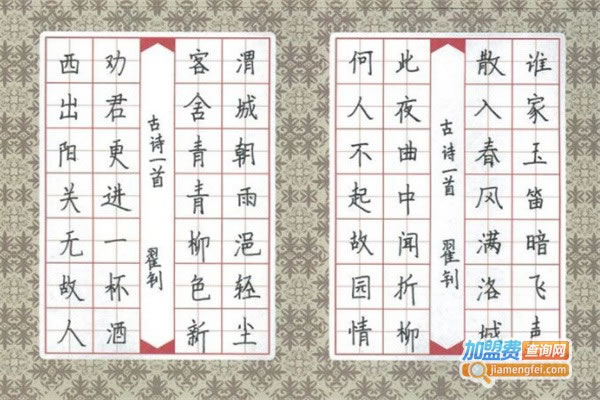 谁家玉笛暗飞声
散入春风满洛城
古诗一首 翟钊
此夜曲中闻折柳
何人不起故园情
渭城朝雨浥轻尘
客舍青青柳色新
古诗一首 翟钊
劝君更进一杯酒
西出阳关无故人
加盟费查询网
jiamengfei.com